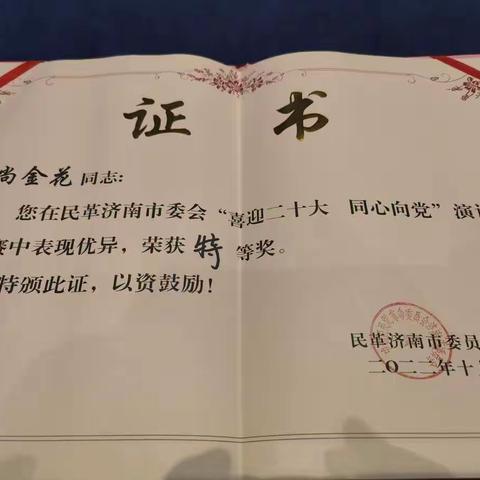 证 书
尚金花 同志：
您在民革济南市委会“喜迎二十大 同心向党”演
中表现优异，荣获 特 等奖。
特颁此证，以资鼓励！
民革济南市委员
二〇二二年十